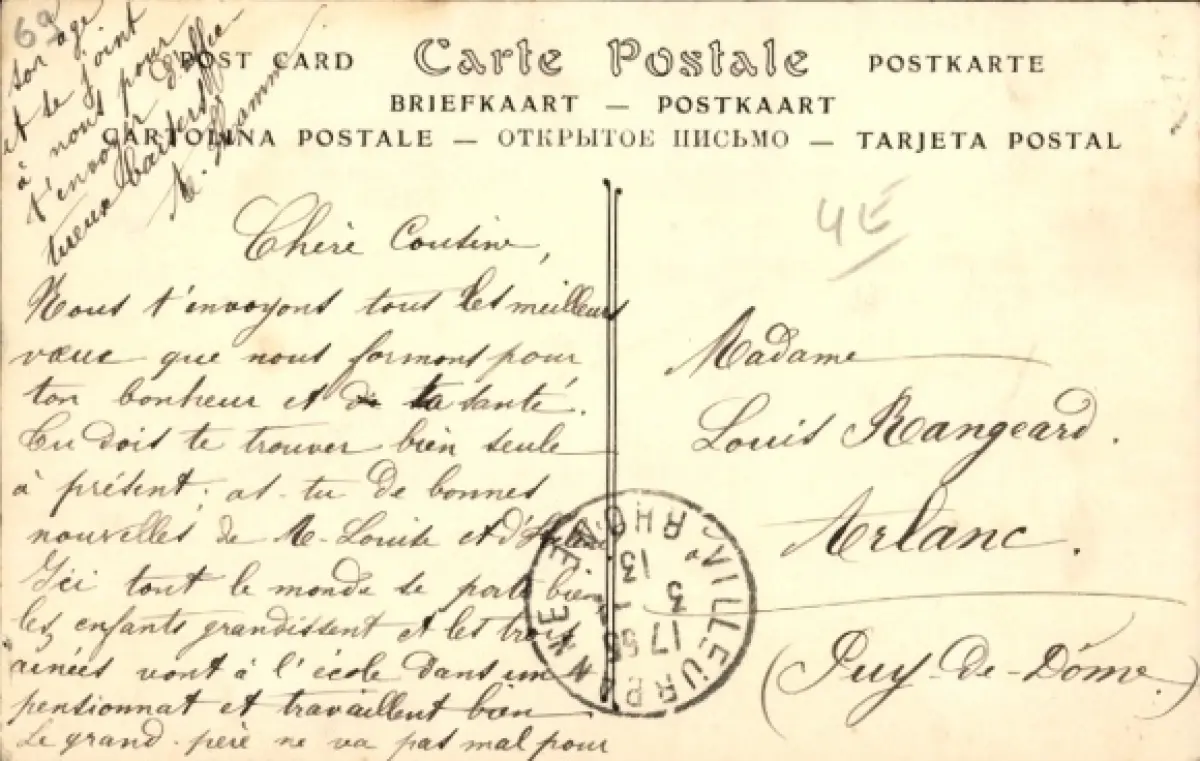 69
POST CARD Carte Postale POSTKARTE
BRIEFKAART — POSTKAART
CARTOLINA POSTALE — ОТКРЫТОЕ ПИСЬМО — TARJETA POSTAL
4E
Chère Cousine,
Nous t'envoyons tous les meilleurs
vœux que nous formons pour
ton bonheur et de ta santé.
Tu dois te trouver bien seule
à présent; as-tu de bonnes
nouvelles de M-Louise et d'
Ici tout le monde se porte bien
les enfants grandissent et les trois
ainées vont à l'école dans un
pensionnat et travaillent bien
Le grand-père ne va pas mal pour
son age
et se joint
à nous pour
t'envoyer d'affec
tueux baisers
Madame
Louis Rangeard.
Arlanc.
(Puy-de-Dôme.)
VILLEURBANNE
RHONE
17 55
3
13